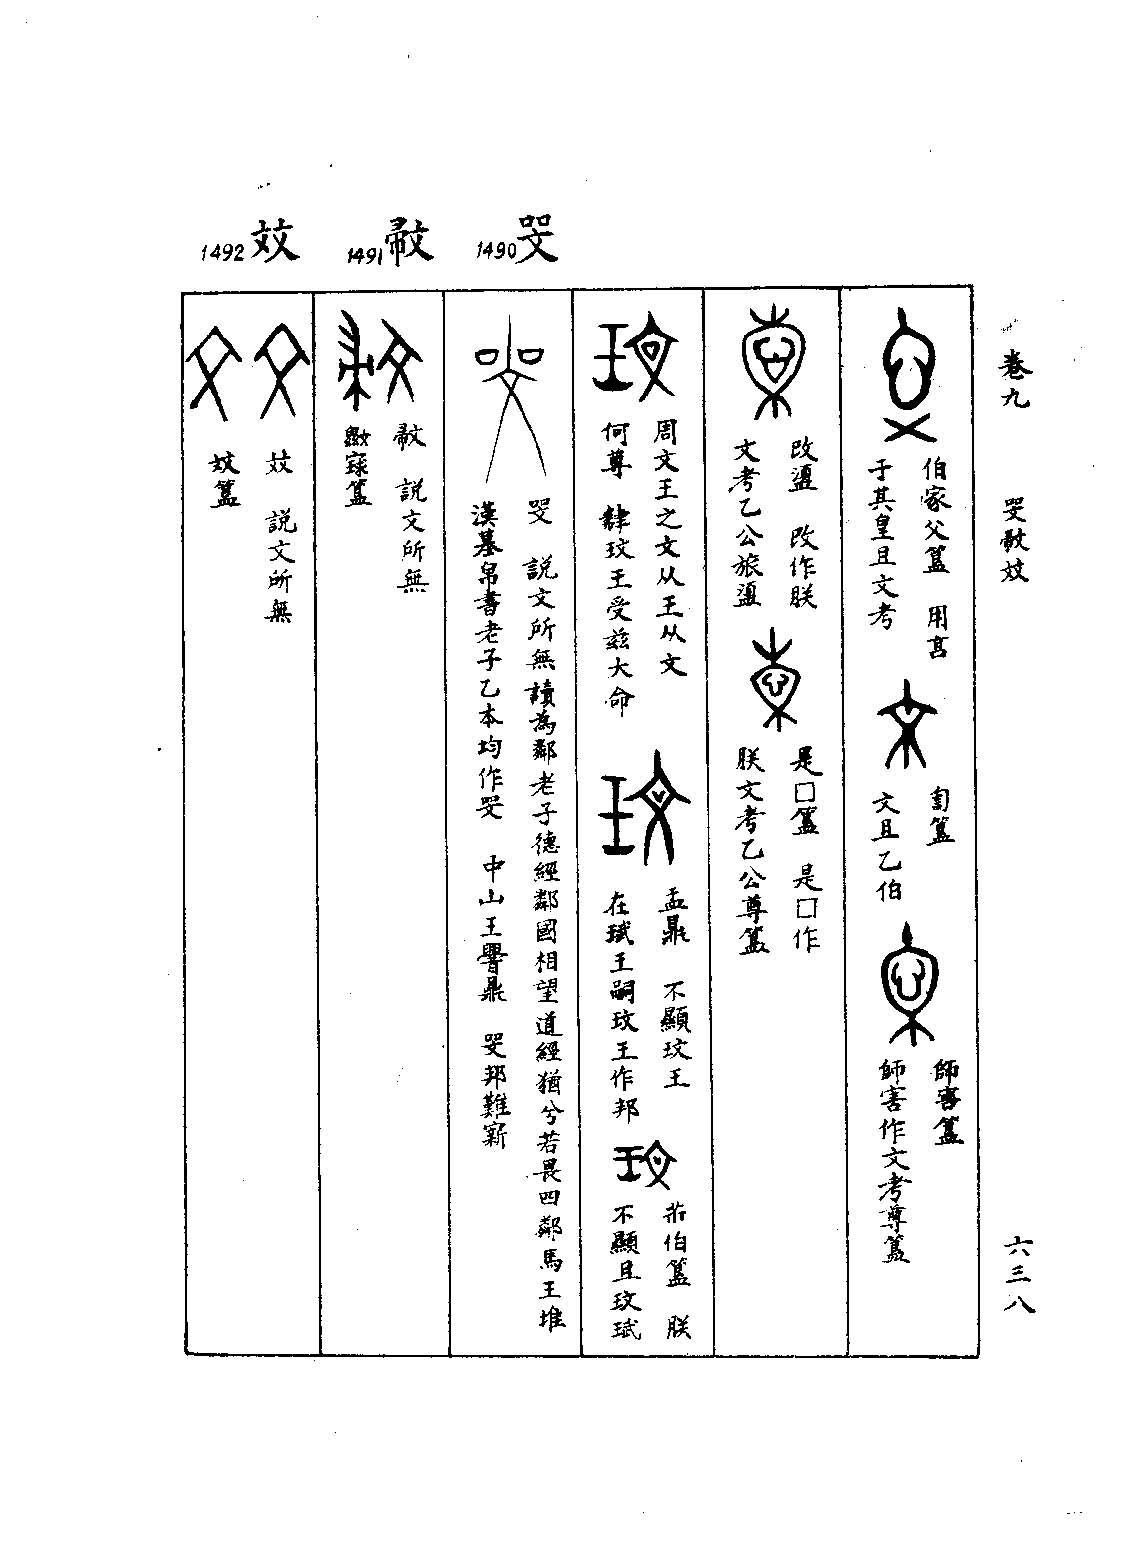 卷九
六三八
伯家父簋 用享
于其皇且文考
匋簋
文且乙伯
師害簋
師害作文考尊簋
改盨 改作朕
文考乙公旅盨
是□簋 是□作
朕文考乙公尊簋
周文王之文从王从文
何尊 肆玟王受兹大命
盂鼎 不顯玟王
在珷王嗣玟王作邦
伯簋 朕
不顯且玟珷
1490
説文所無讀為鄰老子德經鄰國相望道經猶兮若畏四鄰馬王堆
漢墓帛書老子乙本均作 中山王鼎 邦難
1491
説文所無
簋
1492
説文所無
簋